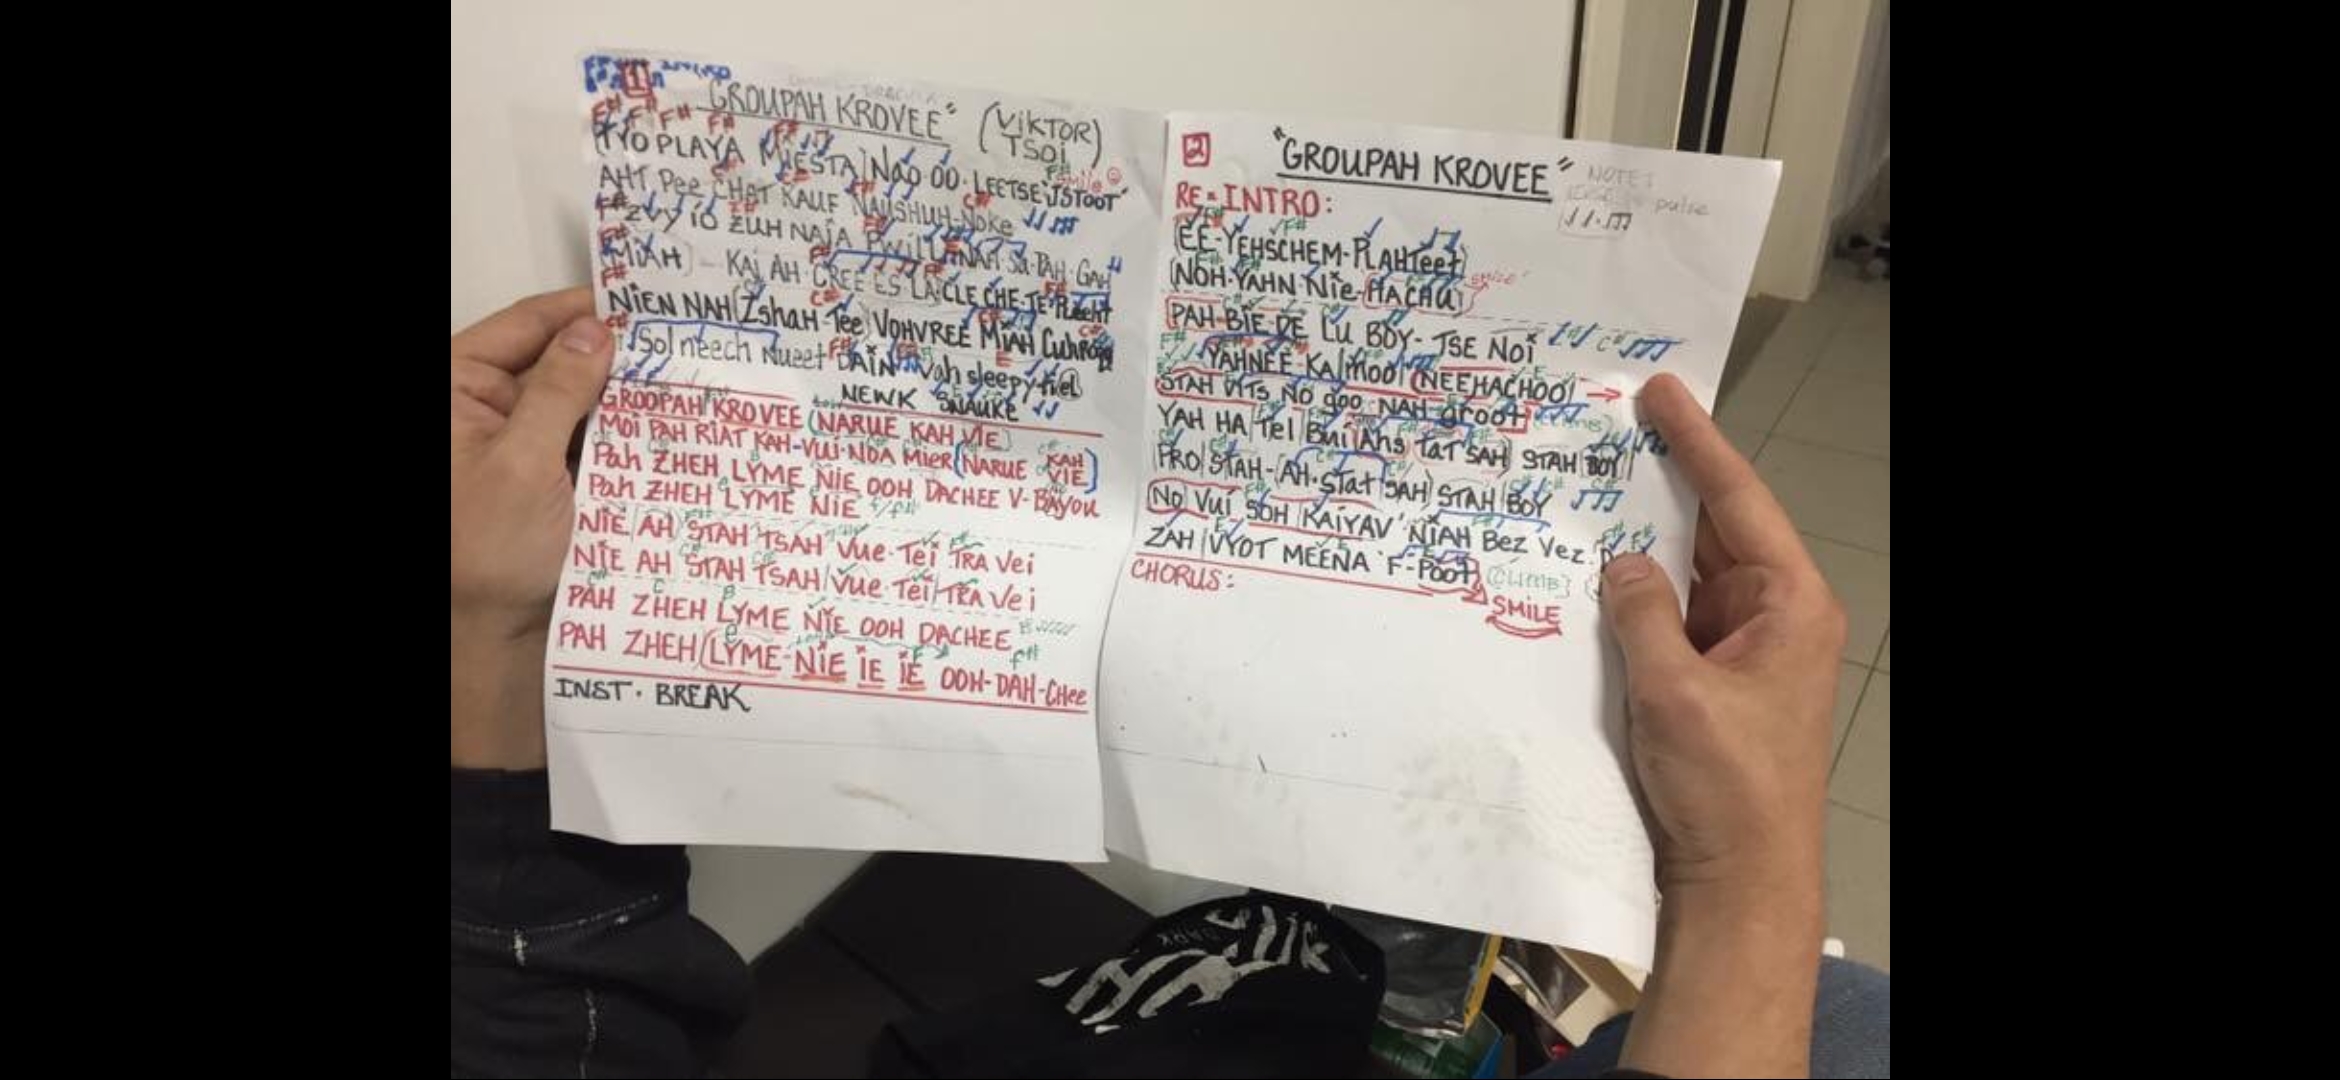 1
"GROUPAH KROVEE" (VIKTOR TSOI)
TYO PLAYA MIESTA NAO OO-LEETSE'JSTOOT"
smile
AHT Pee CHAT KAUF NAUSHUH-Noke
ZVY IO ZUH NAJA PWILL NAH Sa-PAH-GAH
(MIAH) - KAJ AH-CREE ES LA CLE CHE-TE-PLECHT
NIEN NAH ZshaH-Tee VOHVREE MIAH
Sol neech Nueet DAIN Vah sleepy
NEWK SNAUKE
GROOPAH KROVEE (NARUE KAH VIE)
MOI PAH RIAT KAH-VUI-NOA MIER (NARUE KAH VIE)
Pah ZHEH LYME NIE OOH DACHEE V-BAYOU
Pah ZHEH LYME NIE F/F#
NIE AH STAH TSAH VUE-TEI TRA Vei
NIE AH STAH TSAH VUE-TEI TRA Vei
PAH ZHEH LYME NIE OOH DACHEE
PAH ZHEH LYME-NIE IE IE OOH-DAH-CHee
INST. BREAK
2
"GROUPAH KROVEE"
NOTE:
pulse
RE-INTRO:
(EE-YEHSCHEM-PLAHTeet)
(NOH-YAHN-Nie-HACHU)
smile
PAH-BIE-DE LU BOY-TSE NOI
YAHNEE-KAMOOI NEEHACHOO
STAH VITS NO goo NAH groot (CLIMB)
YAH HA Tel BUI AHS TaT SAH STAH BOY
PRO STAH-AH-STAT SAH STAH BOY
NO VUI SOH KAIYAV'NIAH BEZ Vez
ZAH VYOT MEENA 'F-POOT (CLIMB)
CHORUS:
SMILE